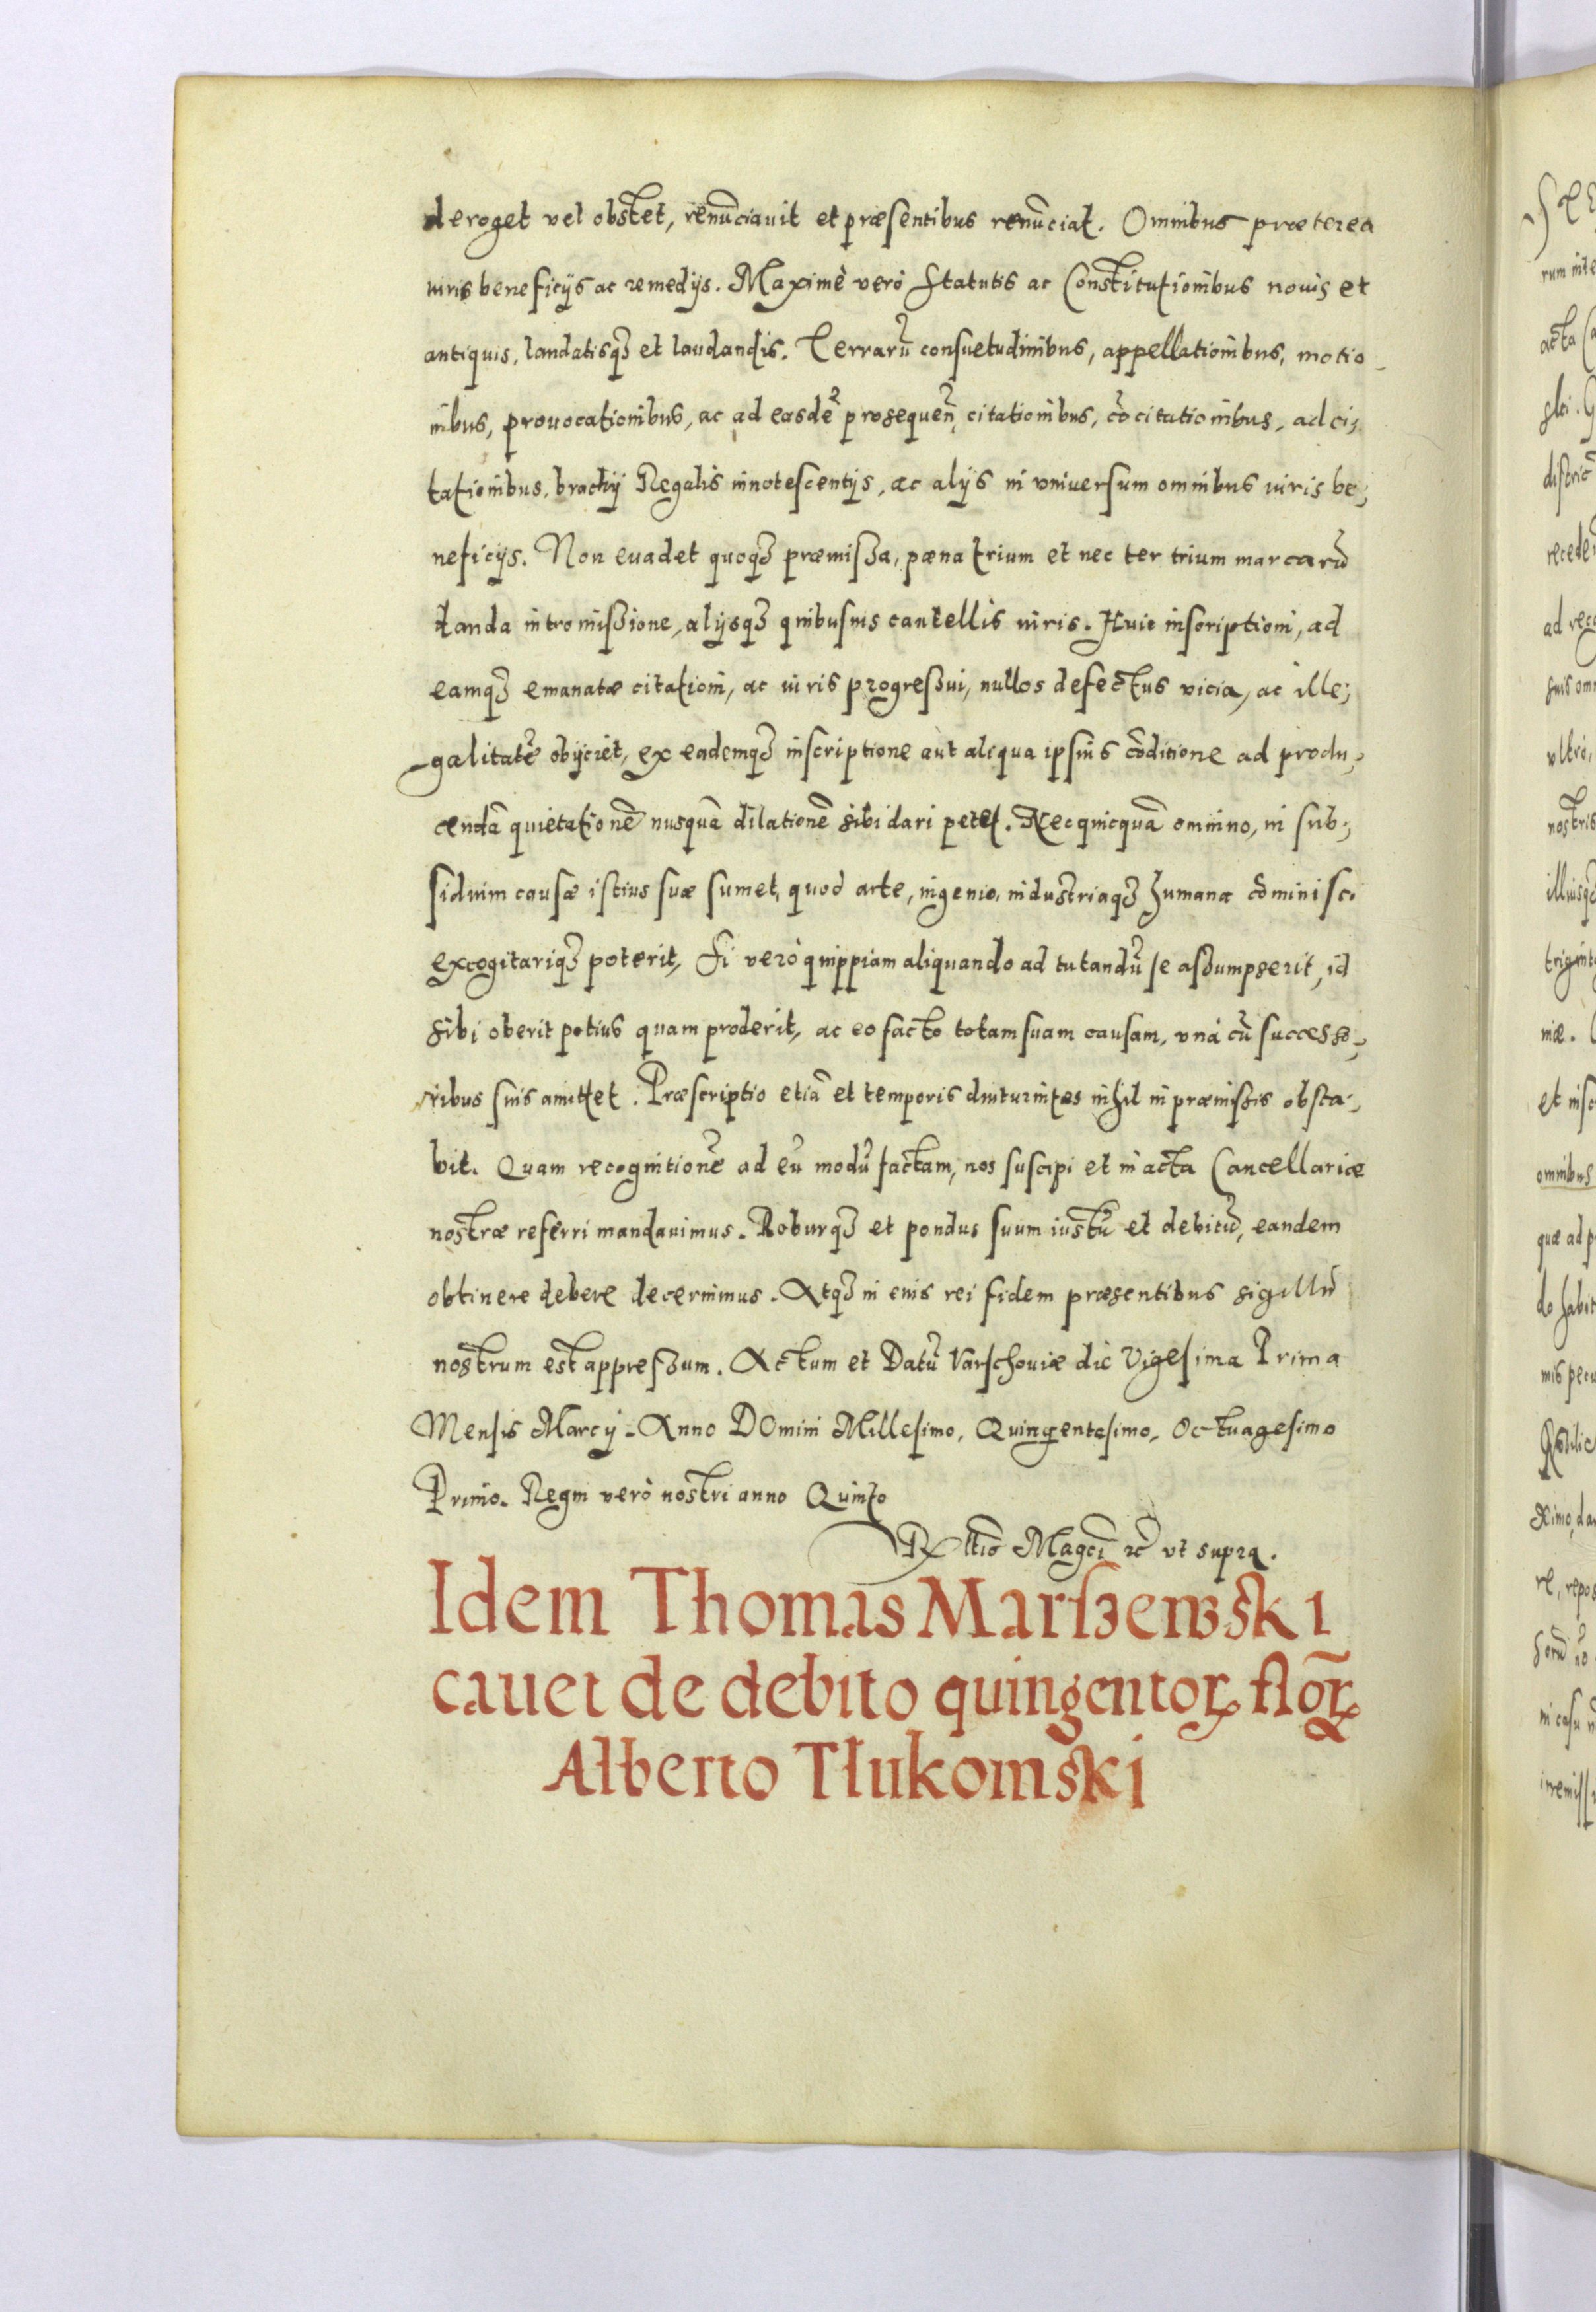 deroget vel obstet, renūciavit et præsentibus renūciat. Omnibus præterea
iuris beneficijs ac remedijs. Maximè verò Statutis ac Constitutionibus novis et
antiquis, laudatisqꝫ et laudandis. Terrarū consuetudinibus, appellationibus, motio-
nibus, provocationibus, ac ad easdē prosequen̄, citationibus, cōcitationibus, adci-
tationibus, brachij Regalis innotescentijs, ac alijs in vniversum omnibus iuris be-
neficijs. Non evadet quoqꝫ præmissa, pæna trium et nec ter trium marcarū
danda intromissione, alijsqꝫ quibusuis cautellis iuris. Huic inscriptioni, ad
eamqꝫ emanatæ citationi, ac iuris progressui, nullos defectus vicia, ac ille-
galitatē obijciet, ex eademqꝫ inscriptione aut aliqua ipsius cōditione ad produ-
cendā quietationē nusquā dilationē sibi dari petet. Nec quicquā omnino, in sub-
sidium causæ istius suæ sumet, quod arte, ingenio, industriaqꝫ humana cōminisci
excogitariqꝫ poterit, Si verò quippiam aliquando ad tutandū se assumpserit, id
sibi oberit potius quam proderit, ac eo facto totam suam causam, vnà cū successo-
ribus suis amittet. Præscriptio etiā et temporis diuturnitas nihil in præmissis obsta-
bit. Quam recognitionē ad eū modū factam, nos suscipi et in acta Cancellariæ
nostræ referri mandavimus. Roburqꝫ et pondus suum iustū et debitū, eandem
obtinere debere decernimus. Atqꝫ in eius rei fidem præsentibus sigillū
nostrum est appressum. Actum et Datū Varschoviæ die Vigesima Prima
Mensis Marcij. Anno DOmini Millesimo, Quingentesimo, Octuagesimo
Primo. Regni verò nostri anno Quinto
Rltio Magci ꝛc vt supra.
Idem Thomas Marszewski
cavet de debito quingentoꝝ floꝝ
Alberto Tłukomski